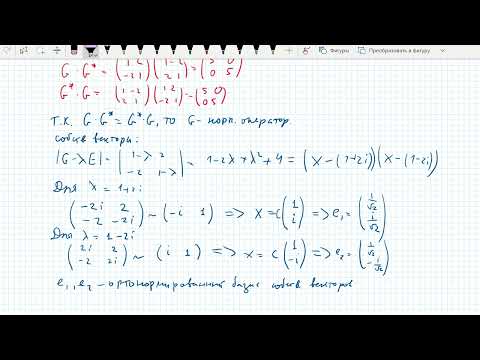 Фигуры Преобразовать в фигуру
G · G* = (1 2 -2 1) (1 -2 2 1) = (5 0 0 5)
G* · G = (1 -2 2 1) (1 2 -2 1) = (5 0 0 5)
Т.К. G·G* = G*·G, то G - норм. оператор.
собств векторы:
|G-λE| = |1-λ 2 -2 1-λ| = 1-2λ+λ²+4 = (x-(1+2i))(x-(1-2i))
Для λ = 1+2i
(-2i 2 -2 -2i) ~ (-i 1) => X = C(1 i) => e₁ = (1/√2 i/√2)
Для λ = 1-2i
(2i 2 -2 2i) ~ (i 1) => x = C(1 -i) => e₂ = (1/√2 -i/√2)
e₁, e₂ - ортонормированный базис собств векторов